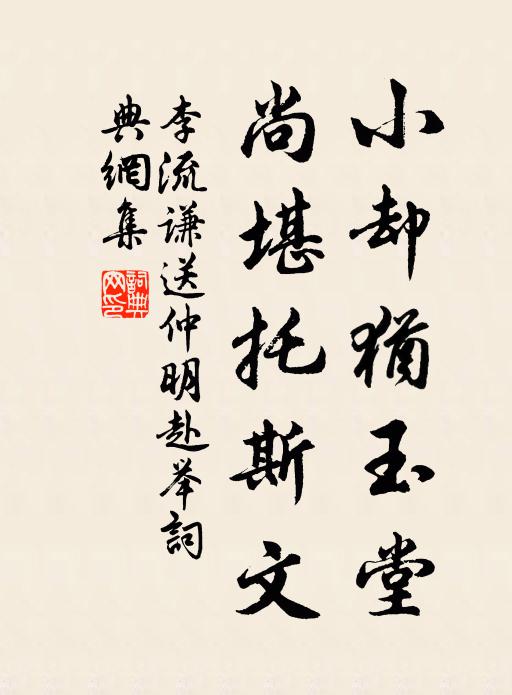 小却犹玉堂
尚堪托斯文
李流谦送仲明赴举詞
典網集
詞典網印